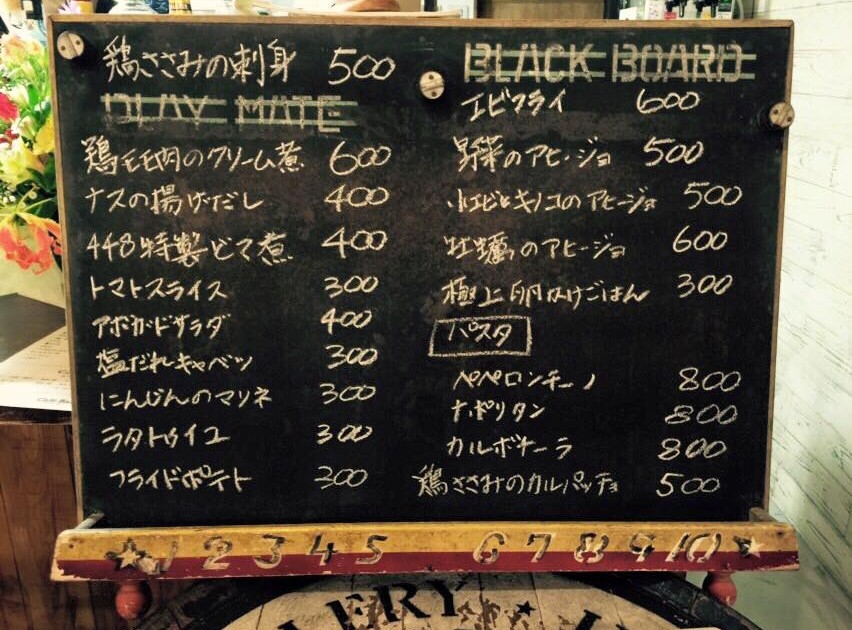 鶏ささみの刺身 500
PLAY MATE
鶏モモ肉のクリーム煮 600
ナスの揚げだし 400
448特製どて煮 400
トマトスライス 300
アボカドサラダ 400
塩だれキャベツ 300
にんじんのマリネ 300
ラタトゥイユ 300
フライドポテト 300
BLACK BOARD
エビフライ 600
野菜のアヒージョ 500
小エビとキノコのアヒージョ 500
牡蠣のアヒージョ 600
極上卵かけごはん 300
パスタ
ペペロンチーノ 800
ナポリタン 800
カルボナーラ 800
鶏ささみのカルパッチョ 500
★1 2 3 4 5 6 7 8 9 10★
LERY ★